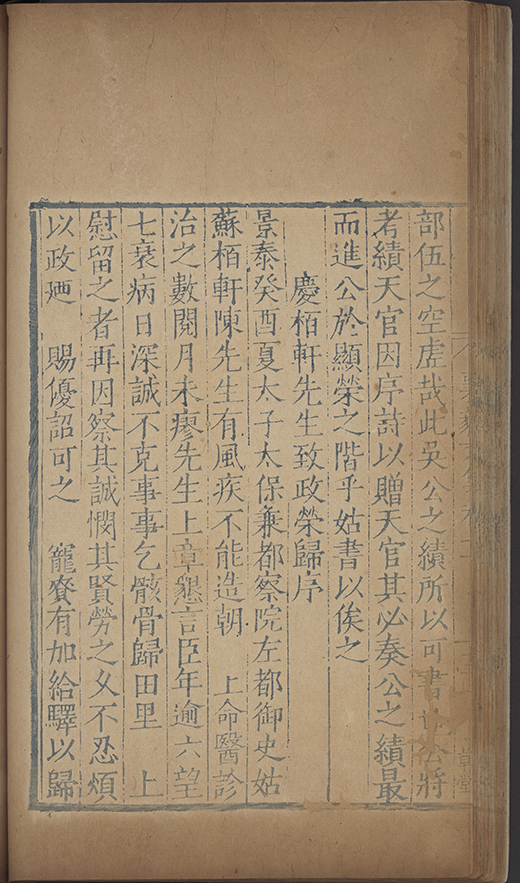 部伍之空虛哉此吳公之績所以可書也公將
考績天官因序詩以贈天官其必奏公之績最
而進公於顯榮之階乎姑書以俟之
慶栢軒先生致政榮歸序
景泰癸酉夏太子太保兼都察院左都御史姑
蘇栢軒陳先生有風疾不能造朝 上命醫診
治之數閱月未瘳先生上章懇言臣年逾六望
七衰病日深誠不克事事乞骸骨歸田里 上
慰留之者再因察其誠憫其賢勞之久不忍煩
以政廼 賜優詔可之 寵賚有加給驛以歸